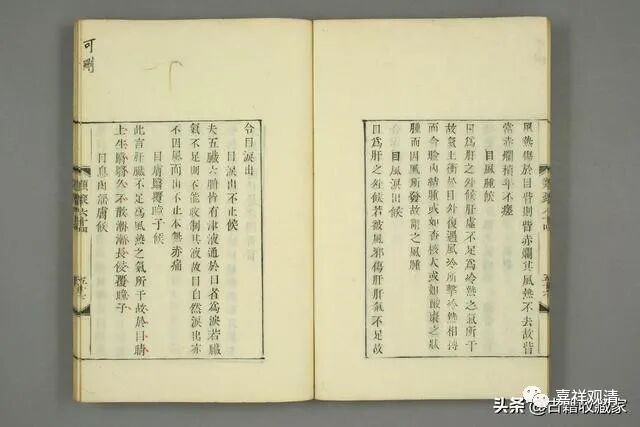 風熱傷於目眥則眥赤爛其風熱不去故眥
常赤爛積年不瘥
目風腫候
目爲肝之外候肝虛不足爲冷熱之氣所干
故氣上衝於目外復遇風冷所擊冷熱相摶
而令瞼內結腫或如杏核大或如酸棗之狀
腫而因風所發故謂之風腫
目風淚出候
目爲肝之外候若被風邪傷肝肝氣不足故
令目淚出
目淚出不止候
夫五臟六腑皆有津液通於目者爲淚若臟
氣不足則不能收制其液故目自然淚出亦
不因風而出不止本無赤痛
目膚翳覆瞳子候
此言肝臟不足爲風熱之氣所干故於目睛
上生翳翳久不散漸漸長侵覆瞳子
目息肉淫膚候
可刪
嘉祥观清
头条@古籍收藏家